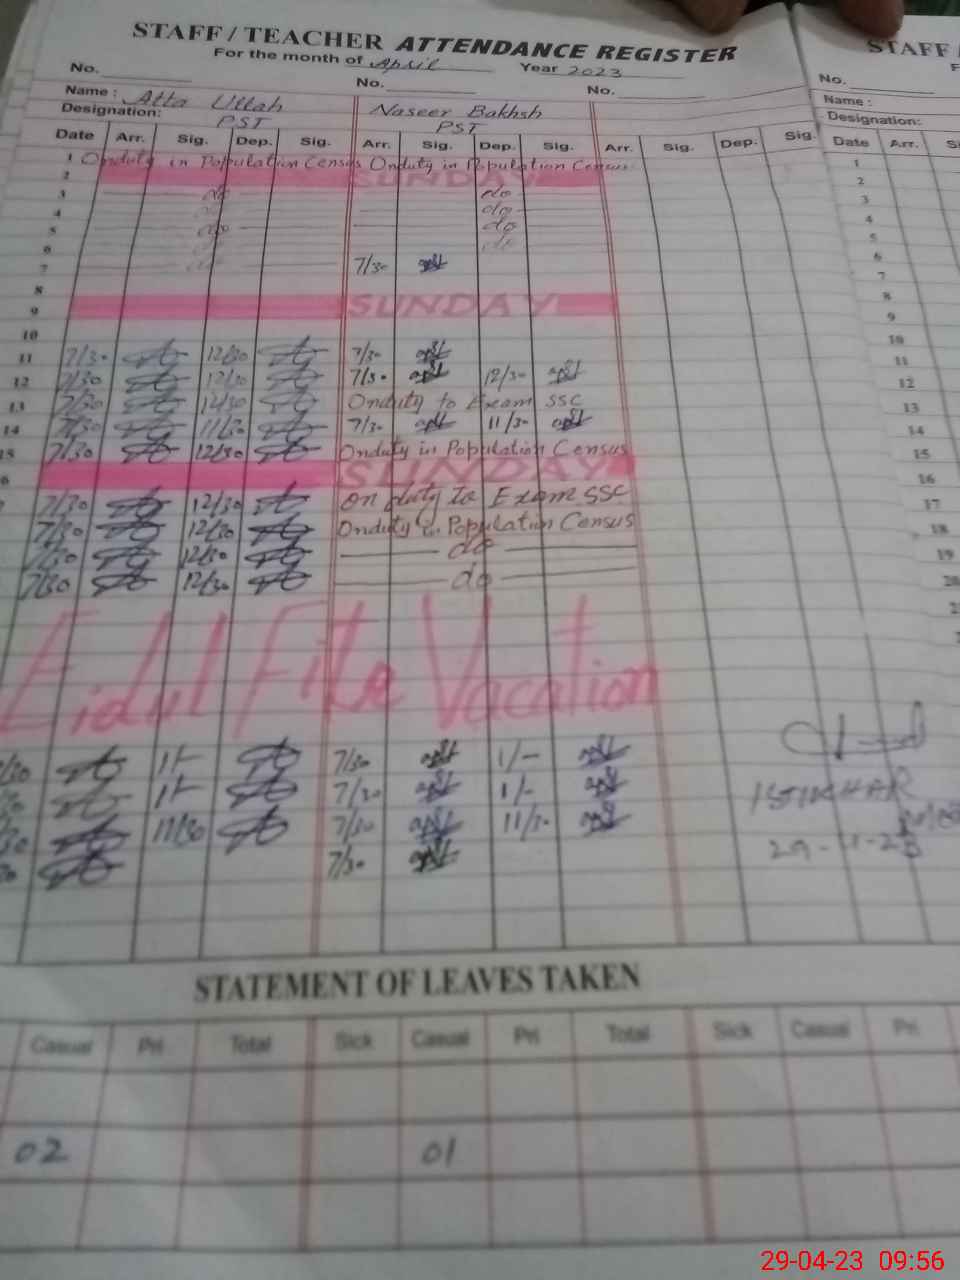 STAFF / TEACHER ATTENDANCE REGISTER
For the month of April Year 2023
No. No. No.
Name : Atta Ullah Naseer Bakhsh
Designation: PST PST
Date Arr. Sig. Dep. Sig. Arr. Sig. Dep. Sig. Arr. Sig. Dep. Sig.
1 Onduty in Population Census Onduty in Population Census
2 SUNDAY
3 do do
4 do do
5 do do
6 do do
7 7/30
8
9 SUNDAY
10
11 7/30 12/30 7/30
12 7/30 12/30 7/30 12/30
13 7/30 12/30 Onduty to Exam SSC
14 7/30 11/30 7/30 11/30
15 7/30 12/30 Onduty in Population Census
6 SUNDAY
7/30 12/30 On duty to Exam SSC
7/30 12/30 Onduty in Population Census
7/30 12/30 do
7/30 12/30 do
Eidul Fite Vacation
7/30 1/- 7/30 1/-
1/- 7/30 1/-
11/30 7/30 11/30
7/30
IFTIKHAR
STATEMENT OF LEAVES TAKEN
Casual Pri Total Sick Casual Pri Total Sick Casual Pri
02 01
STAFF /
F
No.
Name :
Designation:
Date Arr. S
1
2
3
4
5
6
7
8
9
10
11
12
13
14
15
16
17
18
19
20
29-04-23 09:56